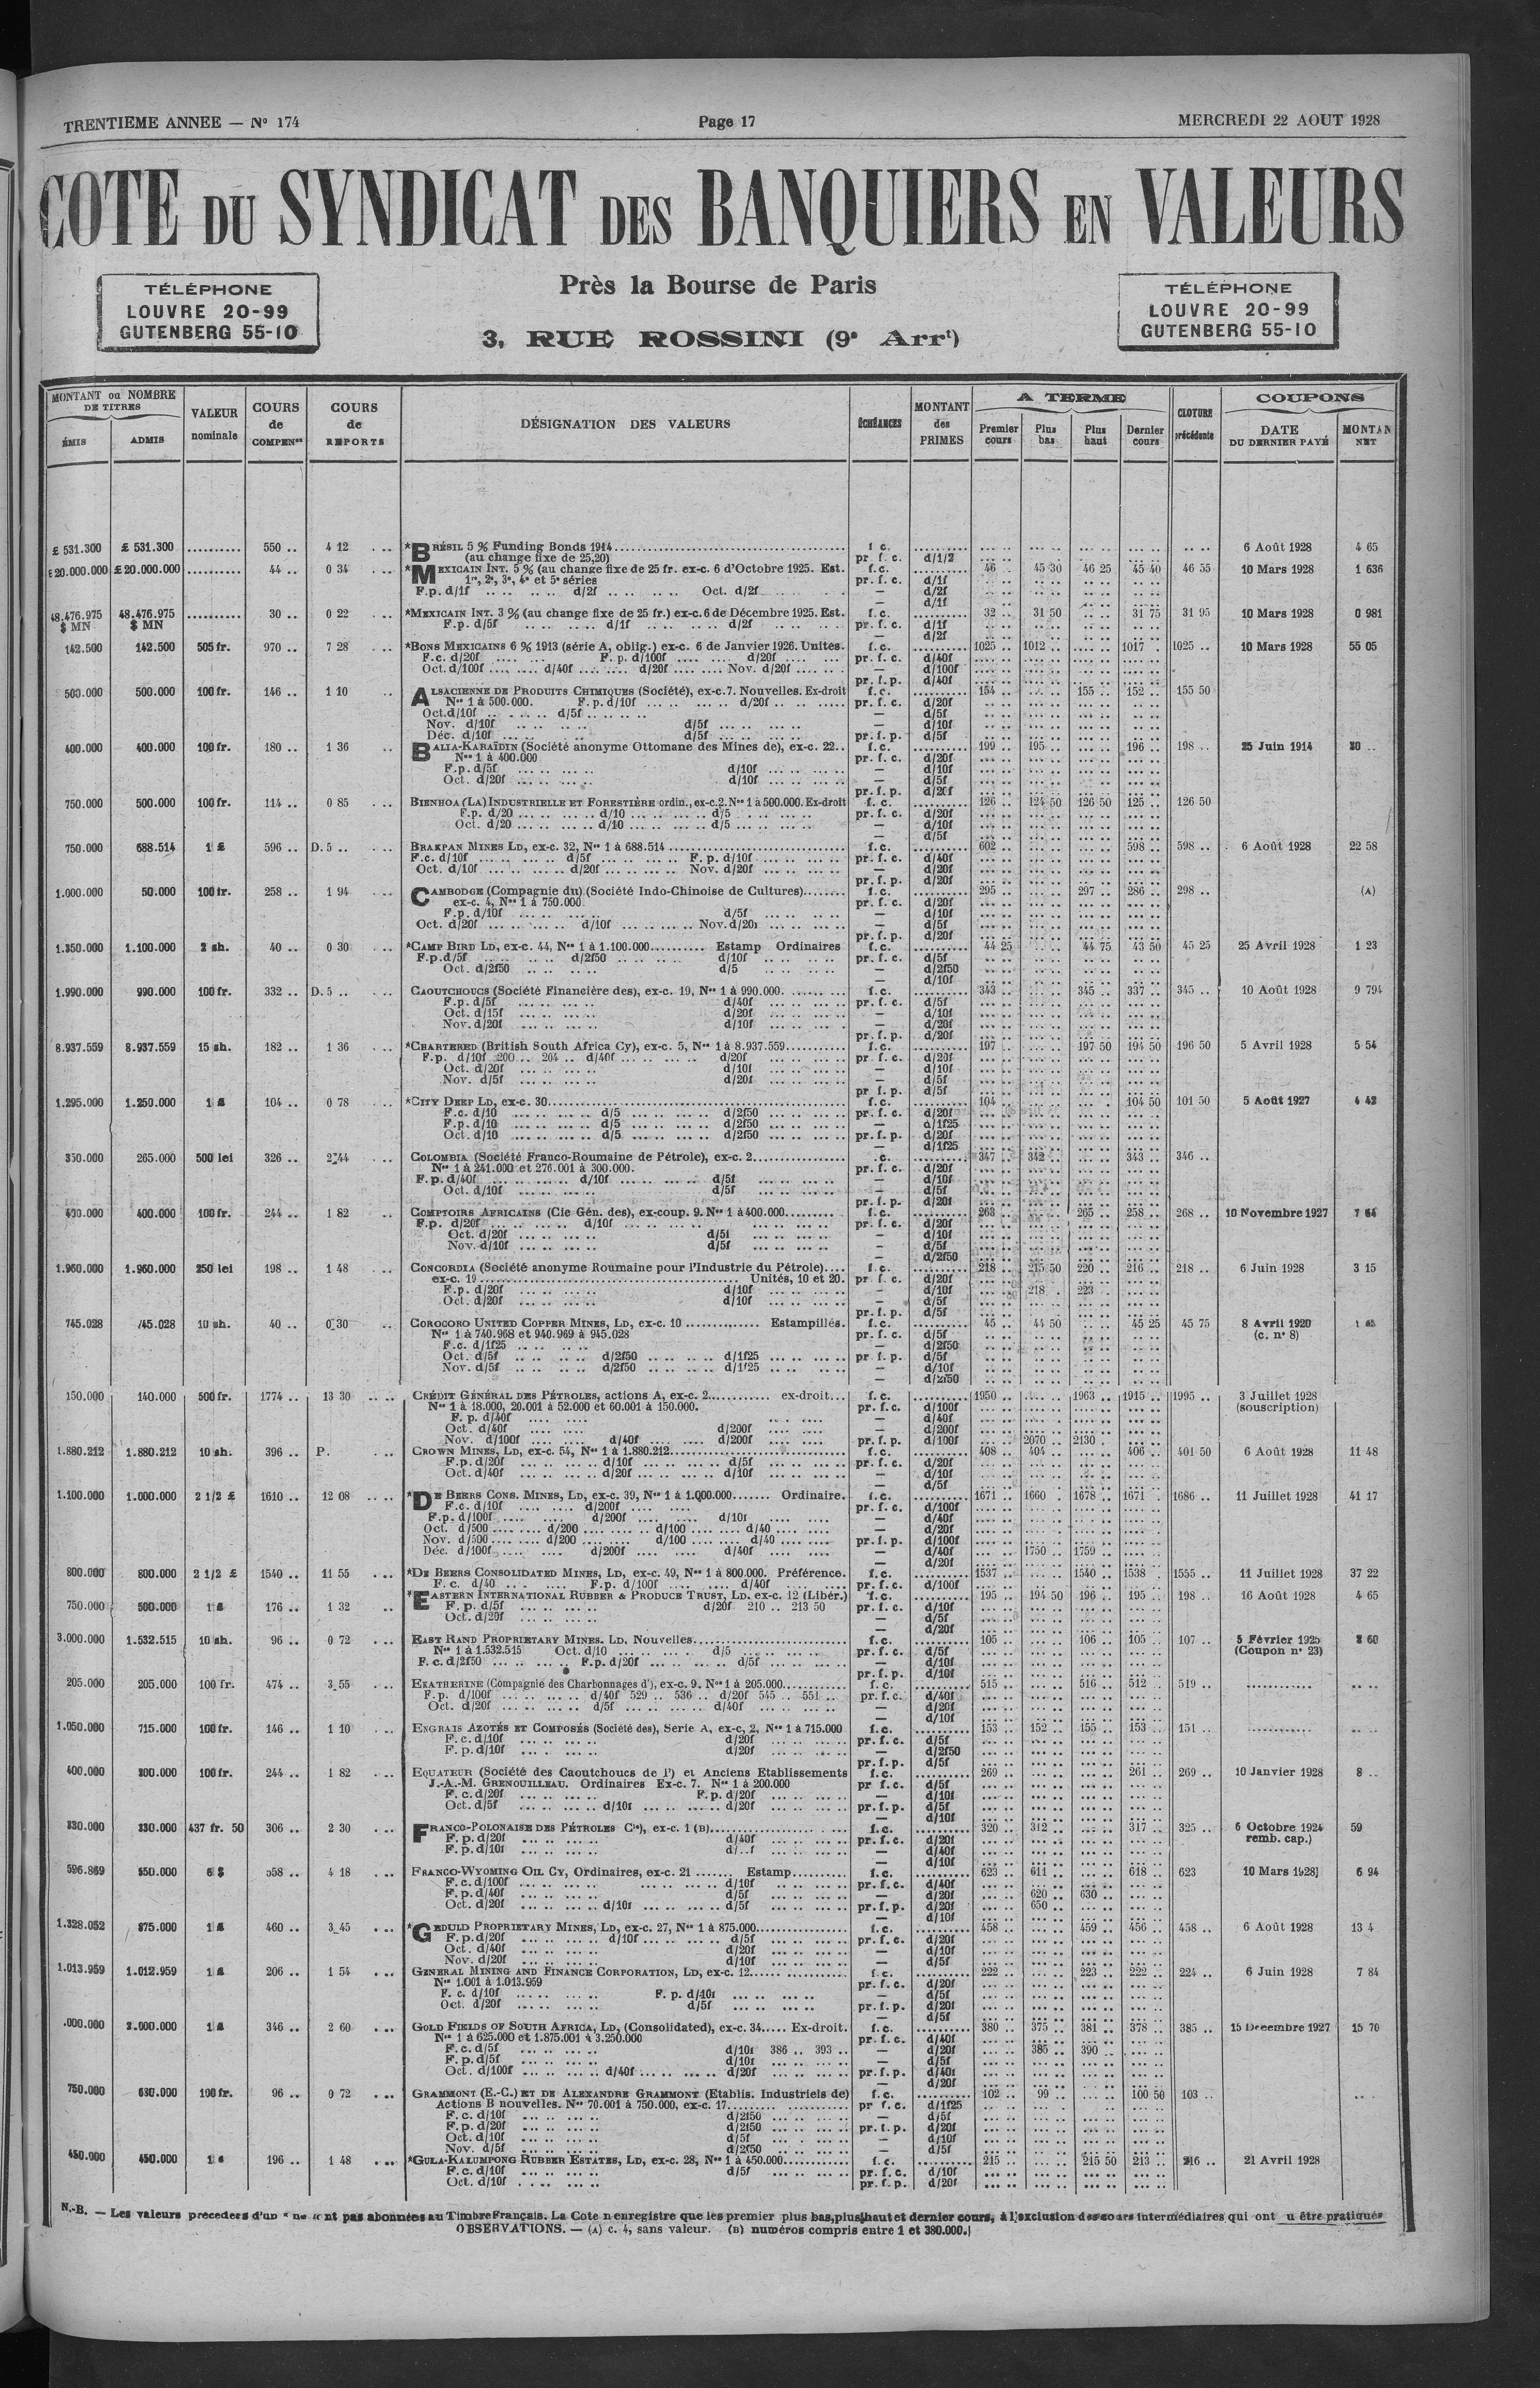 TRENTIEME ANNEE — N° 174
Page 17
MERCREDI 22 AOUT 1928
COTE DU SYNDICAT DES BANQUIERS EN VALEURS
TÉLÉPHONE
LOUVRE 20-99
GUTENBERG 55-10
Près la Bourse de Paris
3, RUE ROSSINI (9e Arrt)
TÉLÉPHONE
LOUVRE 20-99
GUTENBERG 55-10
MONTANT ou NOMBRE DE TITRES
ÉMIS ADMIS
VALEUR nominale
COURS de COMPENon
COURS de REPORTS
DÉSIGNATION DES VALEURS
ÉCHÉANCES
MONTANT des PRIMES
A TERME
Premier cours Plus bas Plus haut Dernier cours
CLOTURE précédente
COUPONS
DATE DU DERNIER PAYÉ
MONTAN NET
£ 531.300 £ 531.300 .......... 550 .. 4 12 *BRÉSIL 5 % Funding Bonds 1914 6 Août 1928 4 65
(au change fixe de 25,20) pr. f. c. d/1/2
£20.000.000 £20.000.000 .......... 44 .. 0 34 *MEXICAIN INT. 5 % (au change fixe de 25 fr. ex-c. 6 d'Octobre 1925. Est. f.c. 46 .. 45 30 46 25 45 40 46 55 10 Mars 1928 1 636
1re, 2e, 3e, 4e et 5e séries pr. f. c. d/1f
F.p. d/1f d/2f Oct. d/2f — d/2f
48.476.975 $ MN 48.476.975 $ MN .......... 30 .. 0 22 *MEXICAIN INT. 3 % (au change fixe de 25 fr.) ex-c. 6 de Décembre 1925. Est. f.c. 32 .. 31 50 31 75 31 95 10 Mars 1928 0 981
F.p. d/5f d/1f d/2f pr. f. c. d/1f
142.500 142.500 505 fr. 970 .. 7 28 *BONS MEXICAINS 6 % 1913 (série A, oblig.) ex-c. 6 de Janvier 1926. Unités. f.c. 1025 .. 1012 .. 1017 . 1025 .. 10 Mars 1928 55 05
F.c. d/20f F. p. d/100f d/20f pr. f. c. d/40f
Oct. d/100f d/40f d/20f Nov. d/20f — d/100f
500.000 500.000 100 fr. 146 .. 1 10 ALSACIENNE DE PRODUITS CHIMIQUES (Société), ex-c.7. Nouvelles. Ex-droit f.c. 154 .. 155 .. 152 .. 155 50
Nos 1 à 500.000. F.p. d/10f d/20f pr. f. c. d/20f
Oct. d/10f d/5f — d/5f
Nov. d/10f d/5f — d/10f
Déc. d/10f d/5f pr. f. p. d/5f
400.000 400.000 100 fr. 180 .. 1 36 BALIA-KARAÏDIN (Société anonyme Ottomane des Mines de), ex-c. 22.. f.c. 199 .. 195 .. 196 .. 198 .. 25 Juin 1914
Nos 1 à 400.000 pr. f. c. d/20f
F.p. d/5f d/10f — d/10f
Oct. d/20f d/10f — d/5f
750.000 500.000 100 fr. 114 .. 0 85 BIENHOA (LA) INDUSTRIELLE ET FORESTIÈRE ordin., ex-c.2. Nos 1 à 500.000. Ex-droit f. c. 126 .. 124 50 126 50 125 .. 126 50
F.p. d/20 d/10 d/5 pr. f. c. d/20f
Oct. d/20 d/10 d/5 — d/10f
750.000 688.514 1 £ 596 .. D. 5 .. BRAKPAN MINES LD, ex-c. 32, Nos 1 à 688.514 f.c. 602 .. 598 .. 598 .. 6 Août 1928 22 58
F.c. d/10f d/5f F. p. d/10f pr. f. c. d/40f
Oct. d/10f d/20f Nov. d/20f — d/20f
1.000.000 50.000 100 fr. 258 .. 1 94 CAMBODGE (Compagnie du) (Société Indo-Chinoise de Cultures) f.c. 295 .. 297 .. 286 .. 298 .. (A)
ex-c. 4, Nos 1 à 750.000 pr. f. c. d/20f
F.p. d/10f d/5f — d/10f
Oct. d/20f d/10f Nov. d/20f — d/5f
1.350.000 1.100.000 2 sh. 40 .. 0 30 *CAMP BIRD LD, ex-c. 44, Nos 1 à 1.100.000 Estamp Ordinaires f.c. 44 25 44 75 43 50 45 25 25 Avril 1928 1 23
F.p. d/5f d/2f50 d/10f pr. f. c. d/5f
Oct. d/2f50 d/5 — d/2f50
1.990.000 990.000 100 fr. 332 .. D. 5 .. CAOUTCHOUCS (Société Financière des), ex-c. 19, Nos 1 à 990.000. f.c. 343 .. 345 .. 337 .. 345 .. 10 Août 1928 9 794
F.p. d/5f d/40f pr. f. c. d/5f
Oct. d/15f d/20f — d/10f
Nov. d/20f d/10f — d/20f
8.937.559 8.937.559 15 sh. 182 .. 1 36 *CHARTERED (British South Africa Cy), ex-c. 5, Nos 1 à 8.937.559 f.c. 197 .. 197 50 194 50 196 50 5 Avril 1928 5 54
F.p. d/10f 200 .. 204 .. d/40f d/20f pr. f. c. d/20f
Oct. d/20f d/10f — d/10f
Nov. d/5f d/20f — d/5f
1.295.000 1.250.000 1 £ 104 .. 0 78 *CITY DEEP LD, ex-c. 30 f.c. 104 .. 104 50 101 50 5 Août 1927 4 42
F.c. d/10 d/5 d/2f50 pr. f. c. d/20f
F.p. d/10 d/5 d/2f50 — d/1f25
Oct. d/10 d/5 d/2f50 pr. f. p. d/20f
350.000 265.000 500 lei 326 .. 2 44 COLOMBIA (Société Franco-Roumaine de Pétrole), ex-c. 2 347 .. 342 .. 343 .. 346 ..
Nos 1 à 241.000 et 276.001 à 300.000. pr. f. c. d/20f
F.p. d/40f d/10f d/5f — d/10f
Oct. d/10f d/5f — d/5f
400.000 400.000 100 fr. 244 .. 1 82 COMPTOIRS AFRICAINS (Cie Gén. des), ex-coup. 9. Nos 1 à 400.000 f.c. 263 .. 265 .. 258 .. 268 .. 10 Novembre 1927
F.p. d/20f d/10f pr. f. c. d/20f
Oct. d/20f d/5f — d/10f
Nov. d/10f d/5f — d/5f
1.960.000 1.960.000 250 lei 198 .. 1 48 CONCORDIA (Société anonyme Roumaine pour l'Industrie du Pétrole) f.c. 218 .. 215 50 220 .. 216 .. 218 .. 6 Juin 1928 3 15
ex-c. 19 Unités, 10 et 20. pr. f. c. d/20f
F.p. d/20f d/10f — d/10f 218 . 223 ..
Oct. d/20f d/10f — d/5f
745.028 745.028 10 sh. 40 .. 0 30 COROCORO UNITED COPPER MINES, LD, ex-c. 10 Estampillés. f.c. 45 .. 44 50 45 25 45 75 8 Avril 1920
Nos 1 à 740.968 et 940.969 à 945.028 pr. f. c. d/5f (c. n° 8)
F.c. d/1f25 — d/2f50
Oct. d/5f d/2f50 d/1f25 pr. f. p. d/5f
Nov. d/5f d/2f50 d/1f25 — d/10f
150.000 140.000 500 fr. 1774 .. 13 30 CRÉDIT GÉNÉRAL DES PÉTROLES, actions A, ex-c. 2 ex-droit... f.c. 1950 .. 1963 .. 1915 .. 1995 .. 3 Juillet 1928
Nos 1 à 18.000, 20.001 à 52.000 et 60.001 à 150.000. pr. f. c. d/100f (souscription)
F. p. d/40f — d/40f
Oct. d/40f d/200f — d/200f
Nov. d/100f d/40f d/200f pr. f. p. d/100f 2070 .. 2130 .
1.880.212 1.880.212 10 sh. 396 .. P. CROWN MINES, LD, ex-c. 54, Nos 1 à 1.880.212 f.c. 408 .. 404 .. 406 .. 401 50 6 Août 1928 11 48
F.p. d/20f d/10f d/5f pr. f. c. d/20f
Oct. d/40f d/20f d/10f — d/10f
1.100.000 1.000.000 2 1/2 £ 1610 .. 12 08 *DE BEERS CONS. MINES, LD, ex-c. 39, Nos 1 à 1.000.000 Ordinaire. f.c. 1671 .. 1660 . 1678 .. 1671 . 1686 .. 11 Juillet 1928 41 17
F.c. d/10f d/200f pr. f. c. d/100f
F.p. d/100f d/200f d/10f — d/40f
Oct. d/500 d/200 d/100 d/40 — d/20f
Nov. d/500 d/200 d/100 d/40 pr. f. p. d/100f
Déc. d/100f d/200f d/40f — d/40f 1750 .. 1759 ..
800.000 800.000 2 1/2 £ 1540 .. 11 55 *DE BEERS CONSOLIDATED MINES, LD, ex-c. 49, Nos 1 à 800.000. Préférence. f.c. 1537 .. 1540 .. 1538 . 1555 .. 11 Juillet 1928 37 22
F. c. d/40 F.p. d/100f d/40f pr. f. c. d/100f
750.000 500.000 1 £ 176 .. 1 32 *EASTERN INTERNATIONAL RUBBER & PRODUCE TRUST, LD. ex-c. 12 (Libér.) f.c. 195 .. 194 50 196 .. 195 .. 198 .. 16 Août 1928 4 65
F. p. d/5f d/20f 210 .. 213 50 pr. f. c. d/10f
Oct. d/20f — d/5f
3.000.000 1.532.515 10 sh. 96 .. 0 72 EAST RAND PROPRIETARY MINES. LD, Nouvelles f.c. 105 .. 106 .. 105 .. 107 .. 5 Février 1925
Nos 1 à 1.532.515 Oct. d/10 d/5 pr. f. c. d/5f (Coupon n° 23)
F. c. d/2f50 F.p. d/20f d/5f — d/10f
205.000 205.000 100 fr. 474 .. 3 55 EKATHERINE (Compagnie des Charbonnages d'), ex-c. 9. Nos 1 à 205.000 f.c. 515 .. 516 .. 512 .. 519 ..
F.p. d/100f d/40f 529 .. 536 .. d/20f 545 .. 551 .. pr. f. c. d/40f
Oct. d/20f d/5f d/40f — d/20f
1.050.000 715.000 100 fr. 146 .. 1 10 ENGRAIS AZOTÉS ET COMPOSÉS (Société des), Serie A, ex-c, 2, Nos 1 à 715.000 f.c. 153 .. 152 .. 155 .. 153 .. 151 ..
F.c. d/10f d/20f pr. f. c. d/5f
F. p. d/10f d/20f — d/2f50
400.000 200.000 100 fr. 244 .. 1 82 EQUATEUR (Société des Caoutchoucs de l') et Anciens Etablissements f.c. 269 .. 261 .. 269 .. 10 Janvier 1928 8 ..
J.-A.-M. GRENOUILLEAU. Ordinaires Ex-c. 7. Nos 1 à 200.000 pr f. c. d/5f
F. c. d/20f F.p. d/20f — d/10f
Oct. d/5f d/10f d/20f pr. f. p. d/5f
330.000 330.000 437 fr. 50 306 .. 2 30 FRANCO-POLONAISE DES PÉTROLES Cie), ex-c. 1 (B) f.c. 320 .. 312 .. 317 .. 325 .. 6 Octobre 1924 59
F. p. d/20f d/40f pr. f. c. d/20f remb. cap.)
F. p. d/10f — d/40f
596.869 550.000 6 $ 558 .. 4 18 FRANCO-WYOMING OIL CY, Ordinaires, ex-c. 21 Estamp f.c. 623 .. 611 .. 618 .. 623 10 Mars 1928 6 94
F. c. d/100f d/10f pr. f. c. d/40f
F. p. d/40f d/5f — d/20f 620 .. 630 ..
Oct. d/20f d/10f d/5f pr. f. p. d/20f 650 ..
1.328.052 875.000 1 £ 460 .. 3 45 *GEDULD PROPRIETARY MINES, LD, ex-c. 27, Nos 1 à 875.000 f.c. 458 .. 459 .. 456 .. 458 .. 6 Août 1928 13 4
F. p. d/20f d/10f d/5f pr. f. c. d/20f
Oct. d/40f d/20f — d/10f
Nov. d/20f d/10f — d/5f
1.013.959 1.012.959 1 £ 206 .. 1 54 GENERAL MINING AND FINANCE CORPORATION, LD, ex-c. 12 f.c. 222 .. 223 .. 222 .. 224 .. 6 Juin 1928 7 84
Nos 1.001 à 1.013.959 pr. f. c. d/20f
F. c. d/10f F. p. d/40f — d/5f
Oct. d/20f d/5f pr. f. p. d/20f
.000.000 2.000.000 1 £ 346 .. 2 60 GOLD FIELDS OF SOUTH AFRICA, LD, (Consolidated), ex-c. 34 Ex-droit. f.c. 380 .. 375 .. 381 .. 378 .. 385 .. 15 Décembre 1927 15 70
Nos 1 à 625.000 et 1.875.001 à 3.250.000 pr. f. c. d/40f
F. c. d/5f d/10f 386 .. 393 .. — d/20f 385 .. 390 ..
F. p. d/5f d/10f — d/5f
Oct. d/100f d/40f d/20f pr. f. p. d/40f
750.000 680.000 100 fr. 96 .. 0 72 GRAMMONT (E.-C.) ET DE ALEXANDRE GRAMMONT (Etablis. Industriels de) f.c. 102 .. 99 .. 100 50 103 ..
Actions B nouvelles. Nos 70.001 à 750.000, ex-c. 17 pr f. c. d/1f25
F. c. d/10f d/2f50 — d/5f
F. p. d/20f d/2f50 pr. f. p. d/20f
Oct. d/10f d/5f — d/10f
Nov. d/5f d/2f50 — d/5f
450.000 450.000 196 .. 1 48 *GULA-KALUMPONG RUBBER ESTATES, LD, ex-c. 28, Nos 1 à 450.000 f.c. 215 .. 215 50 213 .. 216 .. 21 Avril 1928
F. c. d/10f d/5f pr. f. c. d/10f
Oct. d/10f pr. f. p. d/20f
N.-B. — Les valeurs precedees d'un * ne sont pas abonnées au Timbre Français. La Cote n enregistre que les premier plus bas, plus haut et dernier cours, à l'exclusion des cours intermédiaires qui ont u être pratiqués
OBSERVATIONS. — (A) c. 4, sans valeur. (B) numéros compris entre 1 et 380.000.